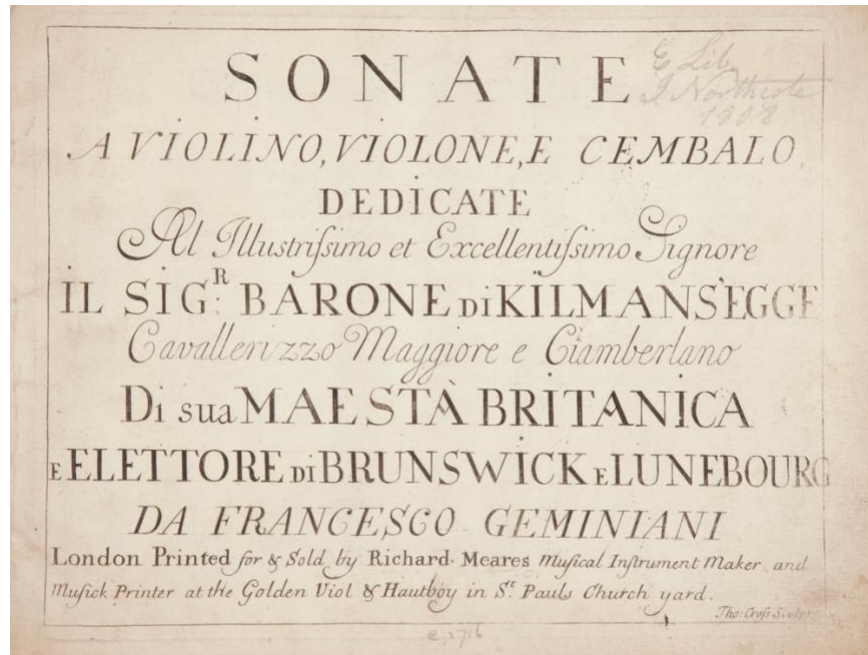 SONATE
E Lib.
J Northcote
1808
A VIOLINO, VIOLONE, E CEMBALO
DEDICATE
Al Illustriſsimo et Excellentiſsimo Signore
IL SIG:R BARONE Di KILMANS'EGGE
Cavallerizzo Maggiore e Ciamberlano
Di sua MAESTÀ BRITANICA
E ELETTORE Di BRUNSWICK E LUNEBOURG
DA FRANCESCO GEMINIANI
London Printed for & Sold by Richard Meares Muſical Inſtrument Maker and
Muſick Printer at the Golden Viol & Hautboy in St. Pauls Church yard.
Tho: Croſs Sculpt
c. 1716